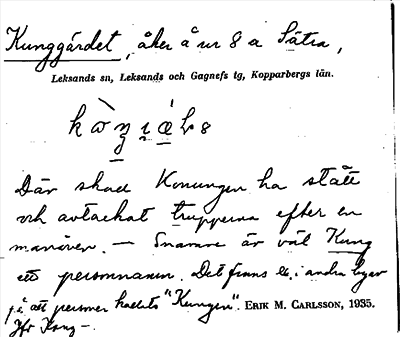 Kunggärdet, åker å nr 8 a Sätra,
Leksands sn, Leksands och Gagnefs tg, Kopparbergs län.
Där skall Konungen ha stått
och avtackat trupperna efter en
manöver. — Snarare är väl Kung
ett personnamn. Det finns ex. i andra byar
på att personer kallats "Kungen". ERIK M. CARLSSON, 1935.
Jfr Kung-.